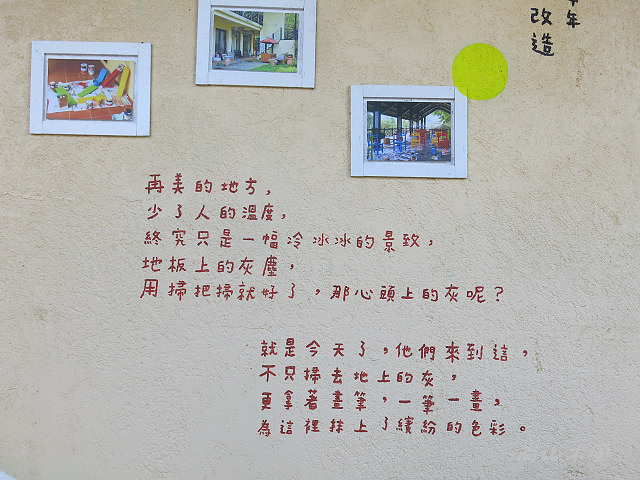 年
改造
再美的地方,
少了人的溫度,
終究只是一幅冷冰冰的景致,
地板上的灰塵,
用掃把掃就好了,那心頭上的灰呢?
就是今天了,他們來到這,
不只掃去地上的灰,
更拿著畫筆,一筆一畫,
為這裡抹上了繽紛的色彩。